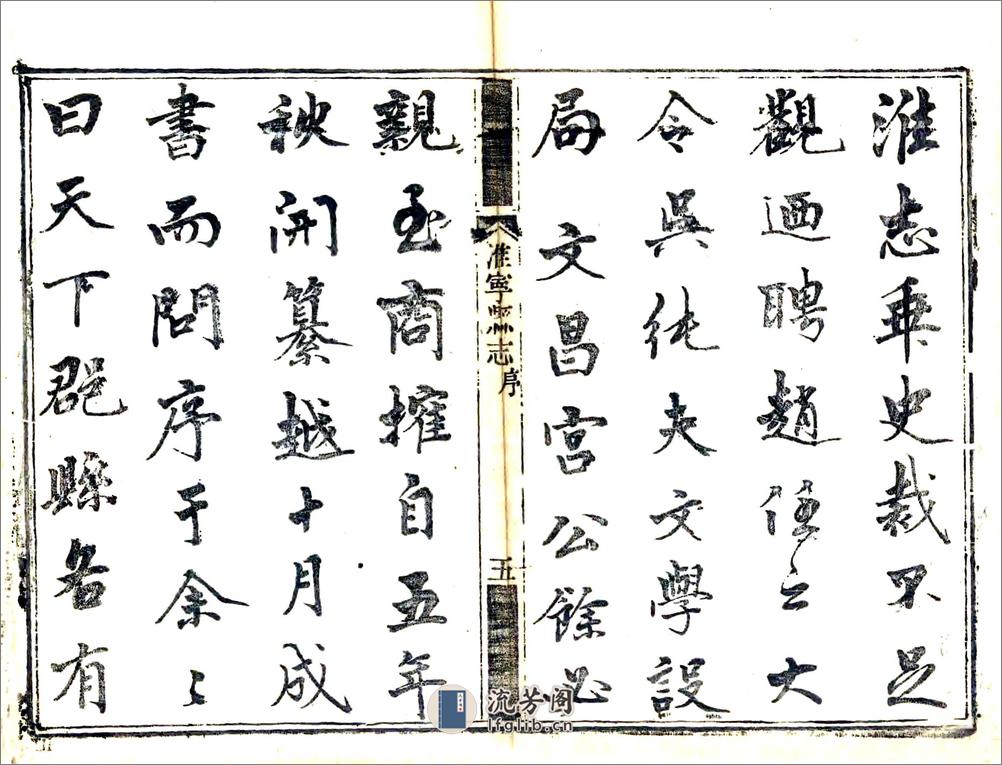 淮志乖史裁不足
觀迺聘趙任之大
令吳純夫文學設
局文昌宮公餘必
淮寧縣志 序 五
親至商搉自五年
秋開纂越十月成
書而問序于余〻
曰天下郡縣各有
流芳阁
lfglib.cn